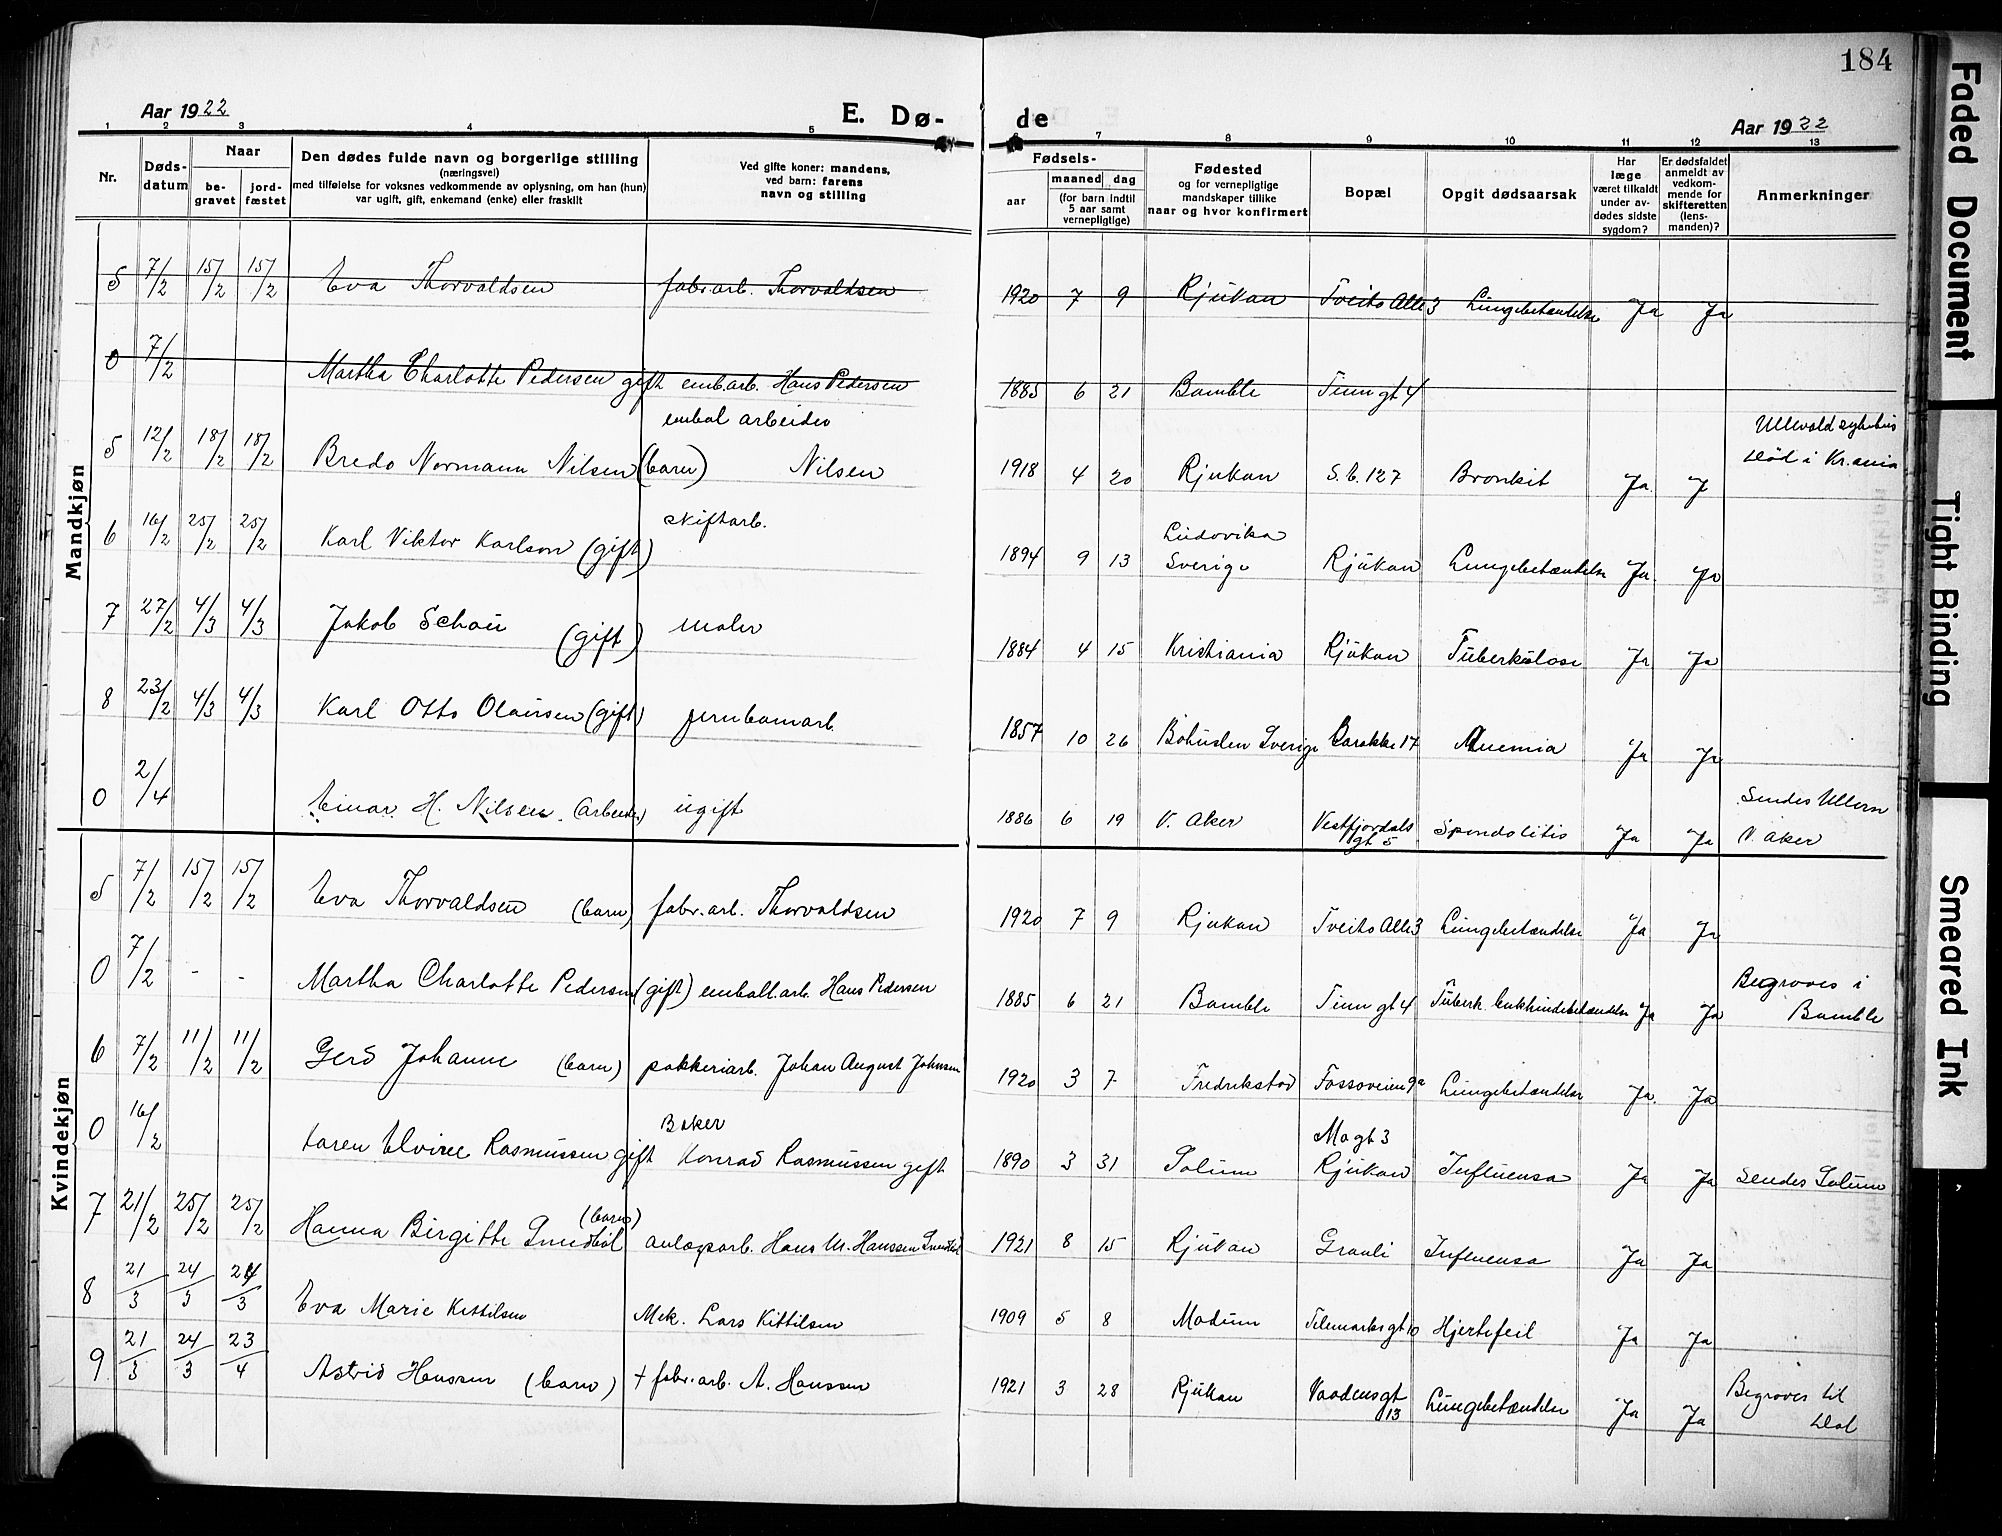 184
Aar 1922 E. Dø- de Aar 1922
1 2 3 4 5 6 7 8 9 10 11 12 13
Nr.
Døds-datum
Naar
be-gravet
jord-fæstet
Den dødes fulde navn og borgerlige stilling
(næringsvei)
med tilføielse for voksnes vedkommende av oplysning, om han (hun)
var ugift, gift, enkemand (enke) eller fraskilt
Ved gifte koner: mandens,
ved barn: farens
navn og stilling
Fødsels-
aar
maaned dag
(for barn indtil
5 aar samt
vernepligtige)
Fødested
og for vernepligtige
mandskaper tillike
naar og hvor konfirmert
Bopæl
Opgit dødsaarsak
Har
læge
været tilkaldt
under av-
dødes sidste
sygdom?
Er dødsfaldet
anmeldt av
vedkom-
mende for
skifteretten
(lens-
manden)?
Anmerkninger
Mandkjøn
5 7/2 15/2 15/2 Eva Thorvaldsen fabr.arb. Thorvaldsen 1920 7 9 Rjukan Tveito Alle 3 Lungebetændelse Ja Ja
0 7/2 Martha Charlotte Pedersen gift emb.arb. Hans Pedersen 1885 6 21 Bamble Tinn gt 4
5 12/2 18/2 18/2 Bredo Normann Nilsen (barn) embal arbeider Nilsen 1918 4 20 Rjukan S.b. 127 Bronkit Ja J Ullevold sykehus død i Kr.ania
6 16/2 25/2 25/2 Karl Viktor Karlson (gift) skiftarb. 1894 9 13 Ludovika Sverige Rjukan Lungebetændelse Ja Ja
7 27/2 4/3 4/3 Jakob Schou (gift) maler 1884 4 15 Kristiania Rjukan Tuberkulose Ja Ja
8 23/2 4/3 4/3 Karl Otto Olaussen (gift) jernbanarb. 1857 10 26 Bohuslen Sverige Barakke 17 Anemia Ja Ja
0 2/4 Einar H. Nilsen. (Arbeider) ugift 1886 6 19 V. Aker Vestfjordals gt 5 Spondolitis Ja Ja Sendes Ullern V. Aker
Kvindekjøn
5 7/2 15/2 15/2 Eva Thorvaldsen (barn) fabr.arb. Thorvaldsen 1920 7 9 Rjukan Tveito Alle 3 Lungebetændelse Ja Ja
0 7/2 - - Martha Charlotte Pedersen (gift) emball.arb. Hans Pedersen 1885 6 21 Bamble Tinn gt 4 Tuberk. bukhindebetændelse Ja Ja Begraves i Bamble
6 7/2 11/2 11/2 Gerd Johanne (barn) pakkeriarb. Johan August Johnsen 1920 3 7 Fredrikstad Fossoveien 9a Lungebetændelse Ja. Ja
0 16/2 Karen Elviree Rasmussen gift Baker Konrad Rasmussen gift 1890 3 31 Solum Magt 3 Rjukan Influensa Ja Ja Sendes Solum
7 21/2 25/2 25/2 Hanna Birgitte Smedbøl (barn) anlægsarb. Hans M. Hanssen Smedbøl 1921 8 15 Rjukan Grauli Influensa Ja Ja
8 21/3 24/3 24/3 Eva Marie Kittilsen Mek. Lars Kittilsen 1909 5 8 Modum Telemarks gt 10 Hjertefeil Ja Ja
9 21/3 24/3 23/4 Astrid Hanssen (barn) + fabr.arb. A. Hanssen 1921 3 28 Rjukan Vaadens gt 13 Lungebetændelse Ja Ja Begraves til Dal
Faded Document
Tight Binding
Smeared Ink